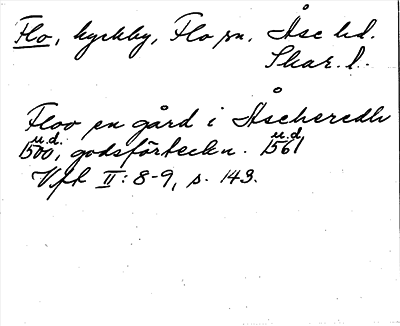 Flo, kyrkby, Flo sn. Åse hd.
Skar. l.
Floo en gård i Åscheredh
u.d. u.d.
1500, godsförteckn. 1561
Vft II: 8-9, s. 143.